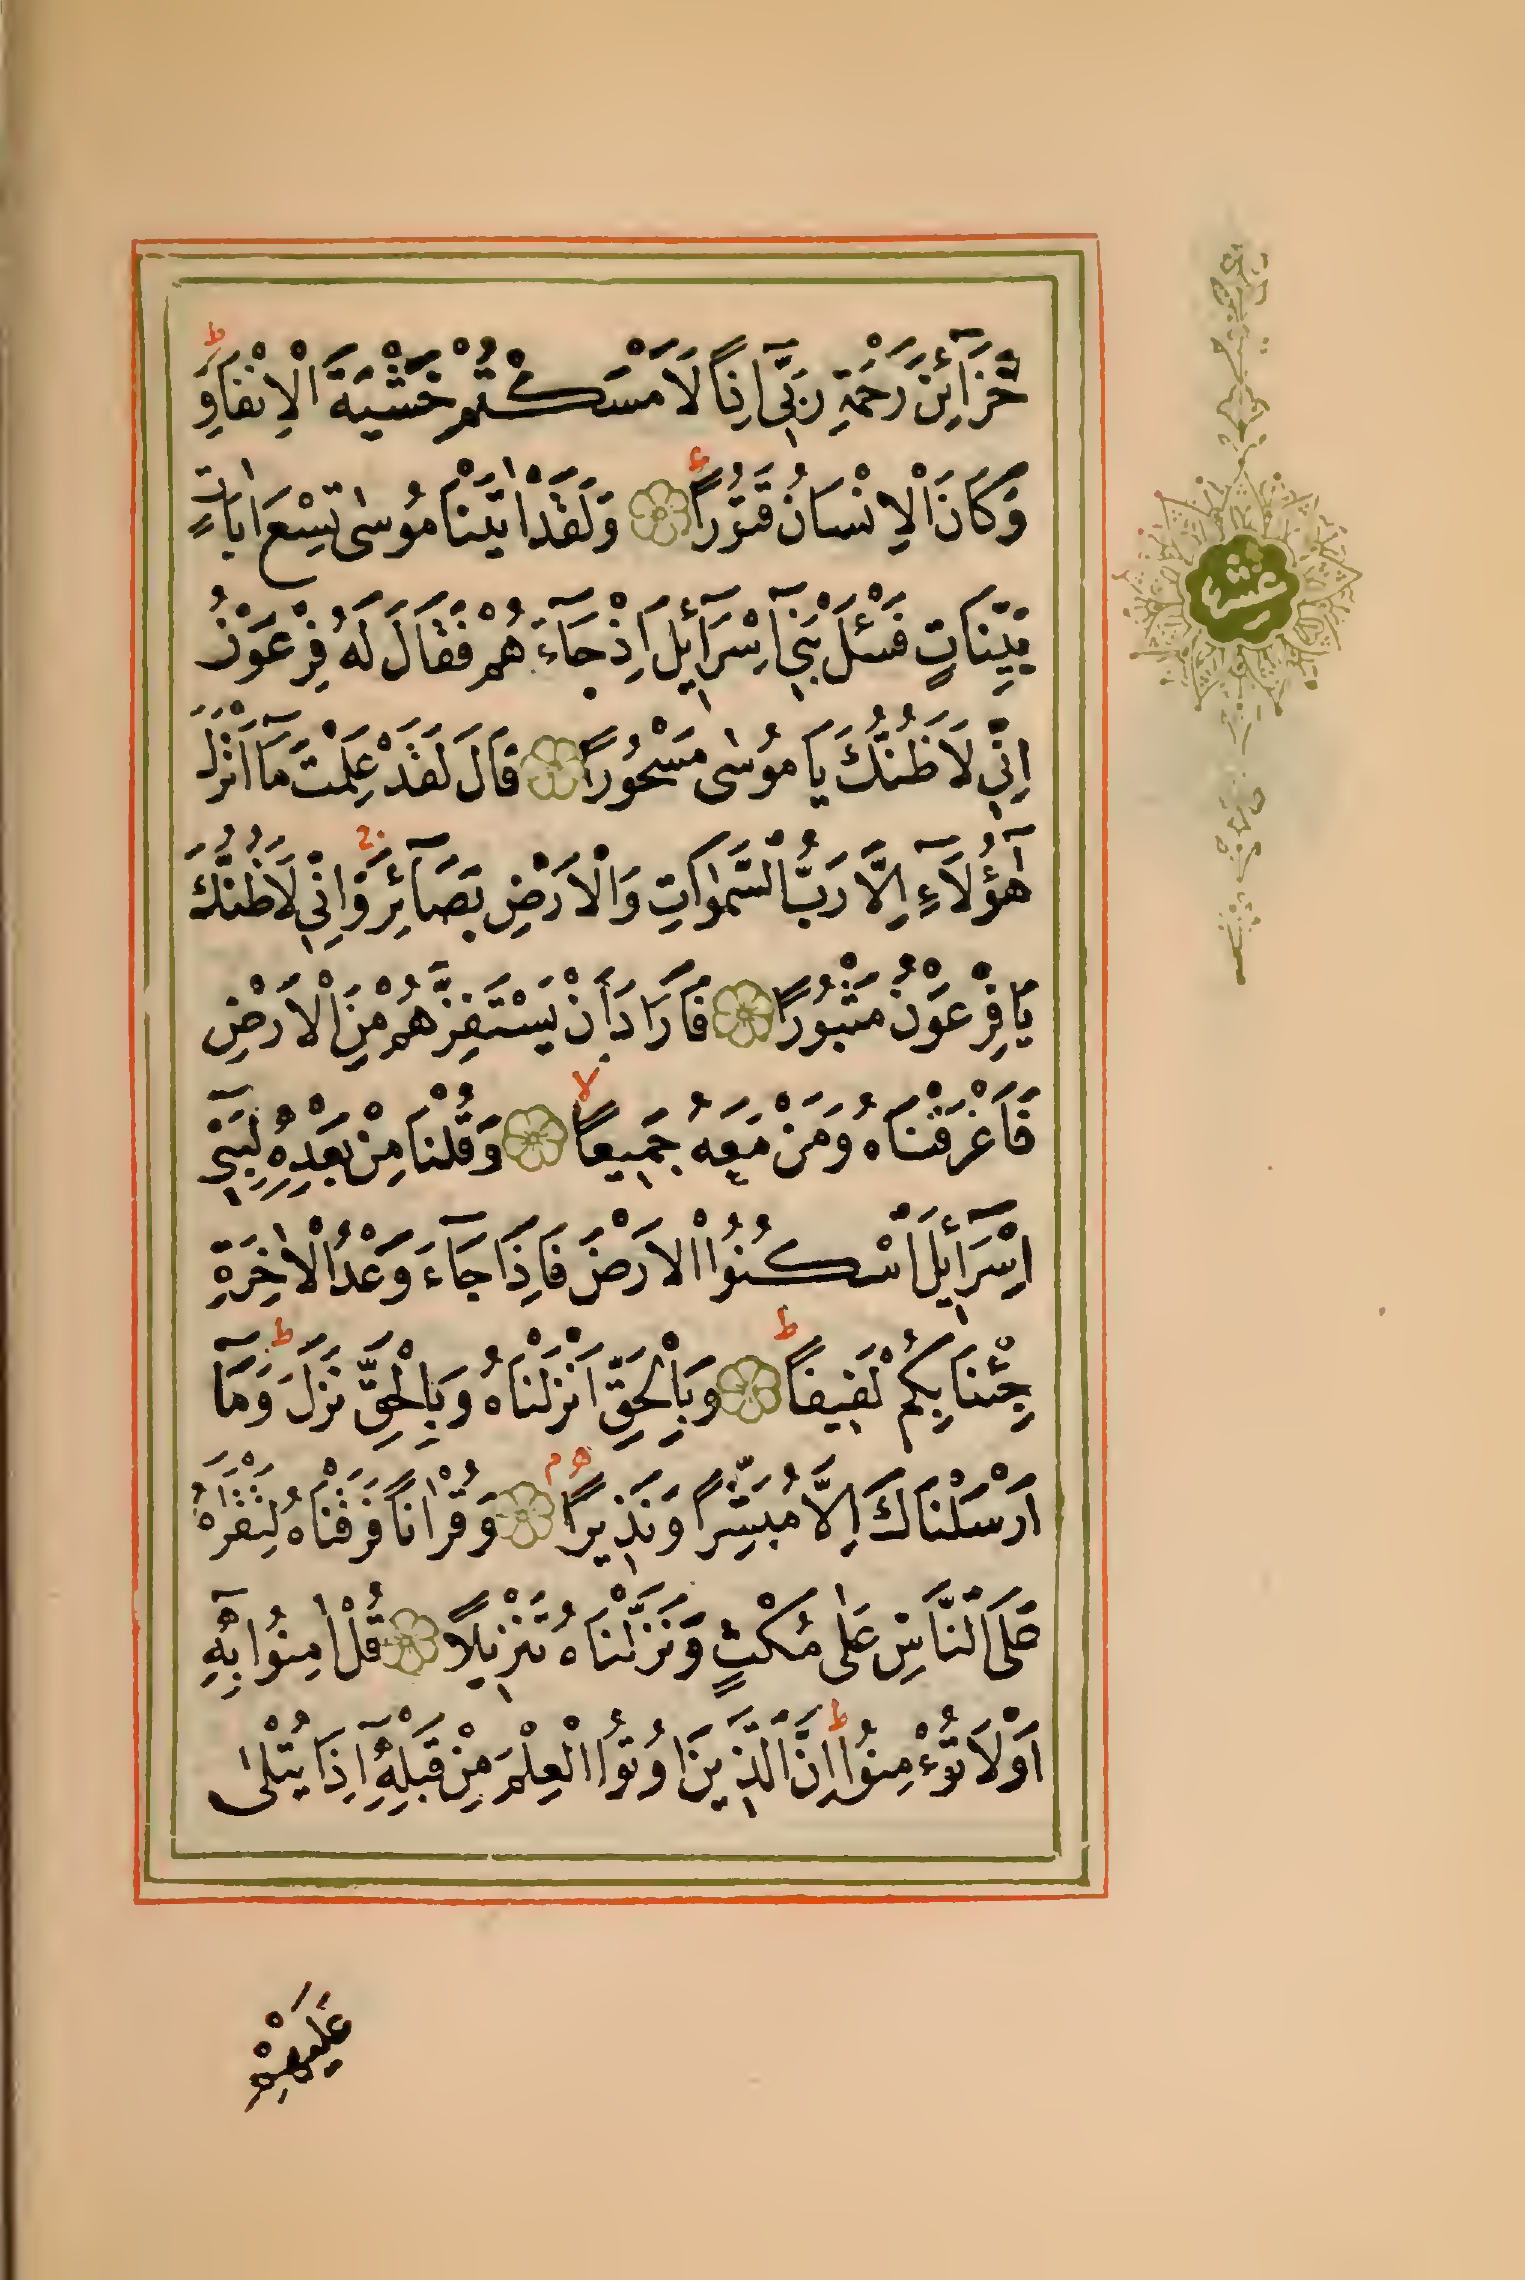 خَزَآئِنَ رَحْمَةِ رَبّ۪ٓى اِذًا لَاَمْسَكْتُمْ خَشْيَةَ الْاِنْفَاقِ ط
وَكَانَ الْاِنْسَانُ قَتُورًا ع وَلَقَدْ اٰتَيْنَا مُوسٰى تِسْعَ اٰيَاتٍ
بَيِّنَاتٍ فَسْئَلْ بَنٖٓى اِسْرَٓائٖلَ اِذْ جَآءَهُمْ فَقَالَ لَهُ فِرْعَوْنُ
اِنّٖى لَاَظُنُّكَ يَا مُوسٰى مَسْحُورًا قَالَ لَقَدْ عَلِمْتَ مَآ اَنْزَلَ
هٰٓؤُلَآءِ اِلَّا رَبُّ السَّمٰوَاتِ وَالْاَرْضِ بَصَآئِرَ ج وَاِنّٖى لَاَظُنُّكَ
يَا فِرْعَوْنُ مَثْبُورًا فَاَرَادَ اَنْ يَسْتَفِزَّهُمْ مِنَ الْاَرْضِ
فَاَغْرَقْنَاهُ وَمَنْ مَعَهُ جَمٖيعًا لا وَقُلْنَا مِنْ بَعْدِهٖ لِبَنٖٓى
اِسْرَٓائٖلَ اسْكُنُوا الْاَرْضَ فَاِذَا جَآءَ وَعْدُ الْاٰخِرَةِ
جِئْنَا بِكُمْ لَفٖيفًا ط وَبِالْحَقِّ اَنْزَلْنَاهُ وَبِالْحَقِّ نَزَلَ ط وَمَآ
اَرْسَلْنَاكَ اِلَّا مُبَشِّرًا وَنَذٖيرًا م وَقُرْاٰنًا فَرَقْنَاهُ لِتَقْرَاَهُ
عَلَى النَّاسِ عَلٰى مُكْثٍ وَنَزَّلْنَاهُ تَنْزٖيلًا قُلْ اٰمِنُوا بِهٖٓ
اَوْ لَا تُؤْمِنُوا ط اِنَّ الَّذٖينَ اُوتُوا الْعِلْمَ مِنْ قَبْلِهٖٓ اِذَا يُتْلٰى
عَلَيْهِمْ